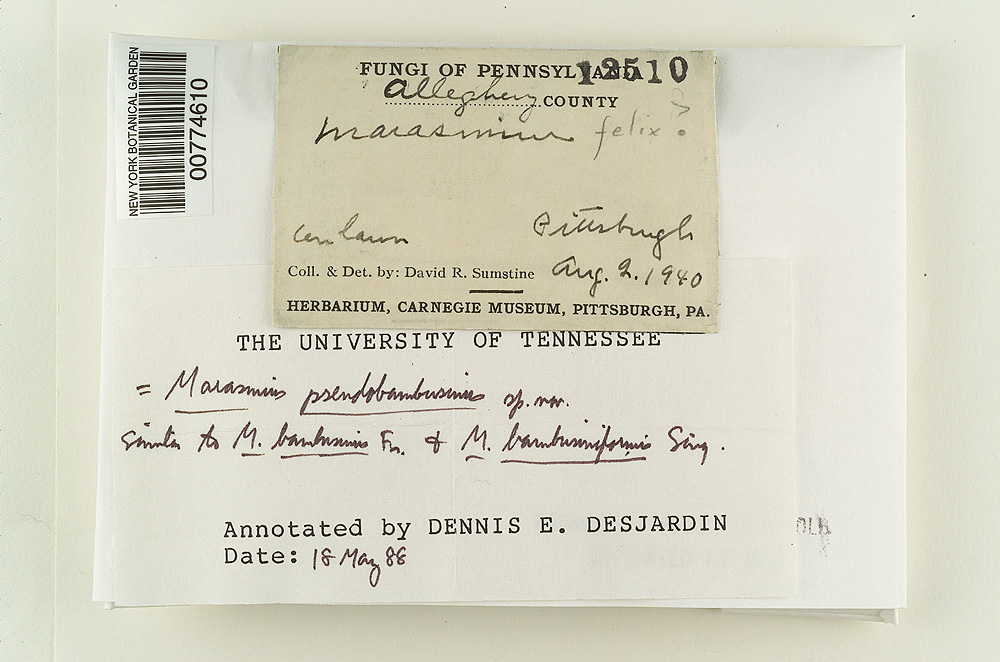 NEW YORK BOTANICAL GARDEN
00774610
12510
FUNGI OF PENNSYLVANIA
Allegheny COUNTY
Marasmius felix?
on lawn
Pittsburgh
Coll. & Det. by: David R. Sumstine Aug. 2. 1940
HERBARIUM, CARNEGIE MUSEUM, PITTSBURGH, PA.
THE UNIVERSITY OF TENNESSEE
= Marasmius pseudobambusinus sp. nov.
Similar to M. bambusinus Fr. & M. bambusiniformis Sing.
Annotated by DENNIS E. DESJARDIN
Date: 18 May 88